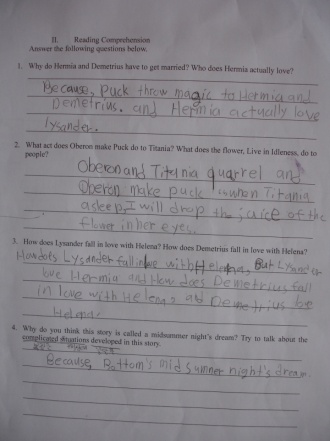 II. Reading Comprehension
Answer the following questions below.
1. Why do Hermia and Demetrius have to get married? Who does Hermia actually love?
Because, Puck throw magic to Hermia and
Demetrius. and Hermia actually love
lysander.
2. What act does Oberon make Puck do to Titania? What does the flower, Live in Idleness, do to
people?
Oberon and Titania quarrel and
Oberon make puck when Titania
asleep, I will drop the juice of the
flower in her eyes.
3. How does Lysander fall in love with Helena? How does Demetrius fall in love with Helena?
How dots Lysander fall in love with Helena, But Lysander
love Hermia and How does Demetrius fall
in love with Helena and Demetrius be
4. Why do you think this story is called a midsummer night's dream? Try to talk about the
complicated situations developed in this story.
Because, Bottom's midsummer night's dream